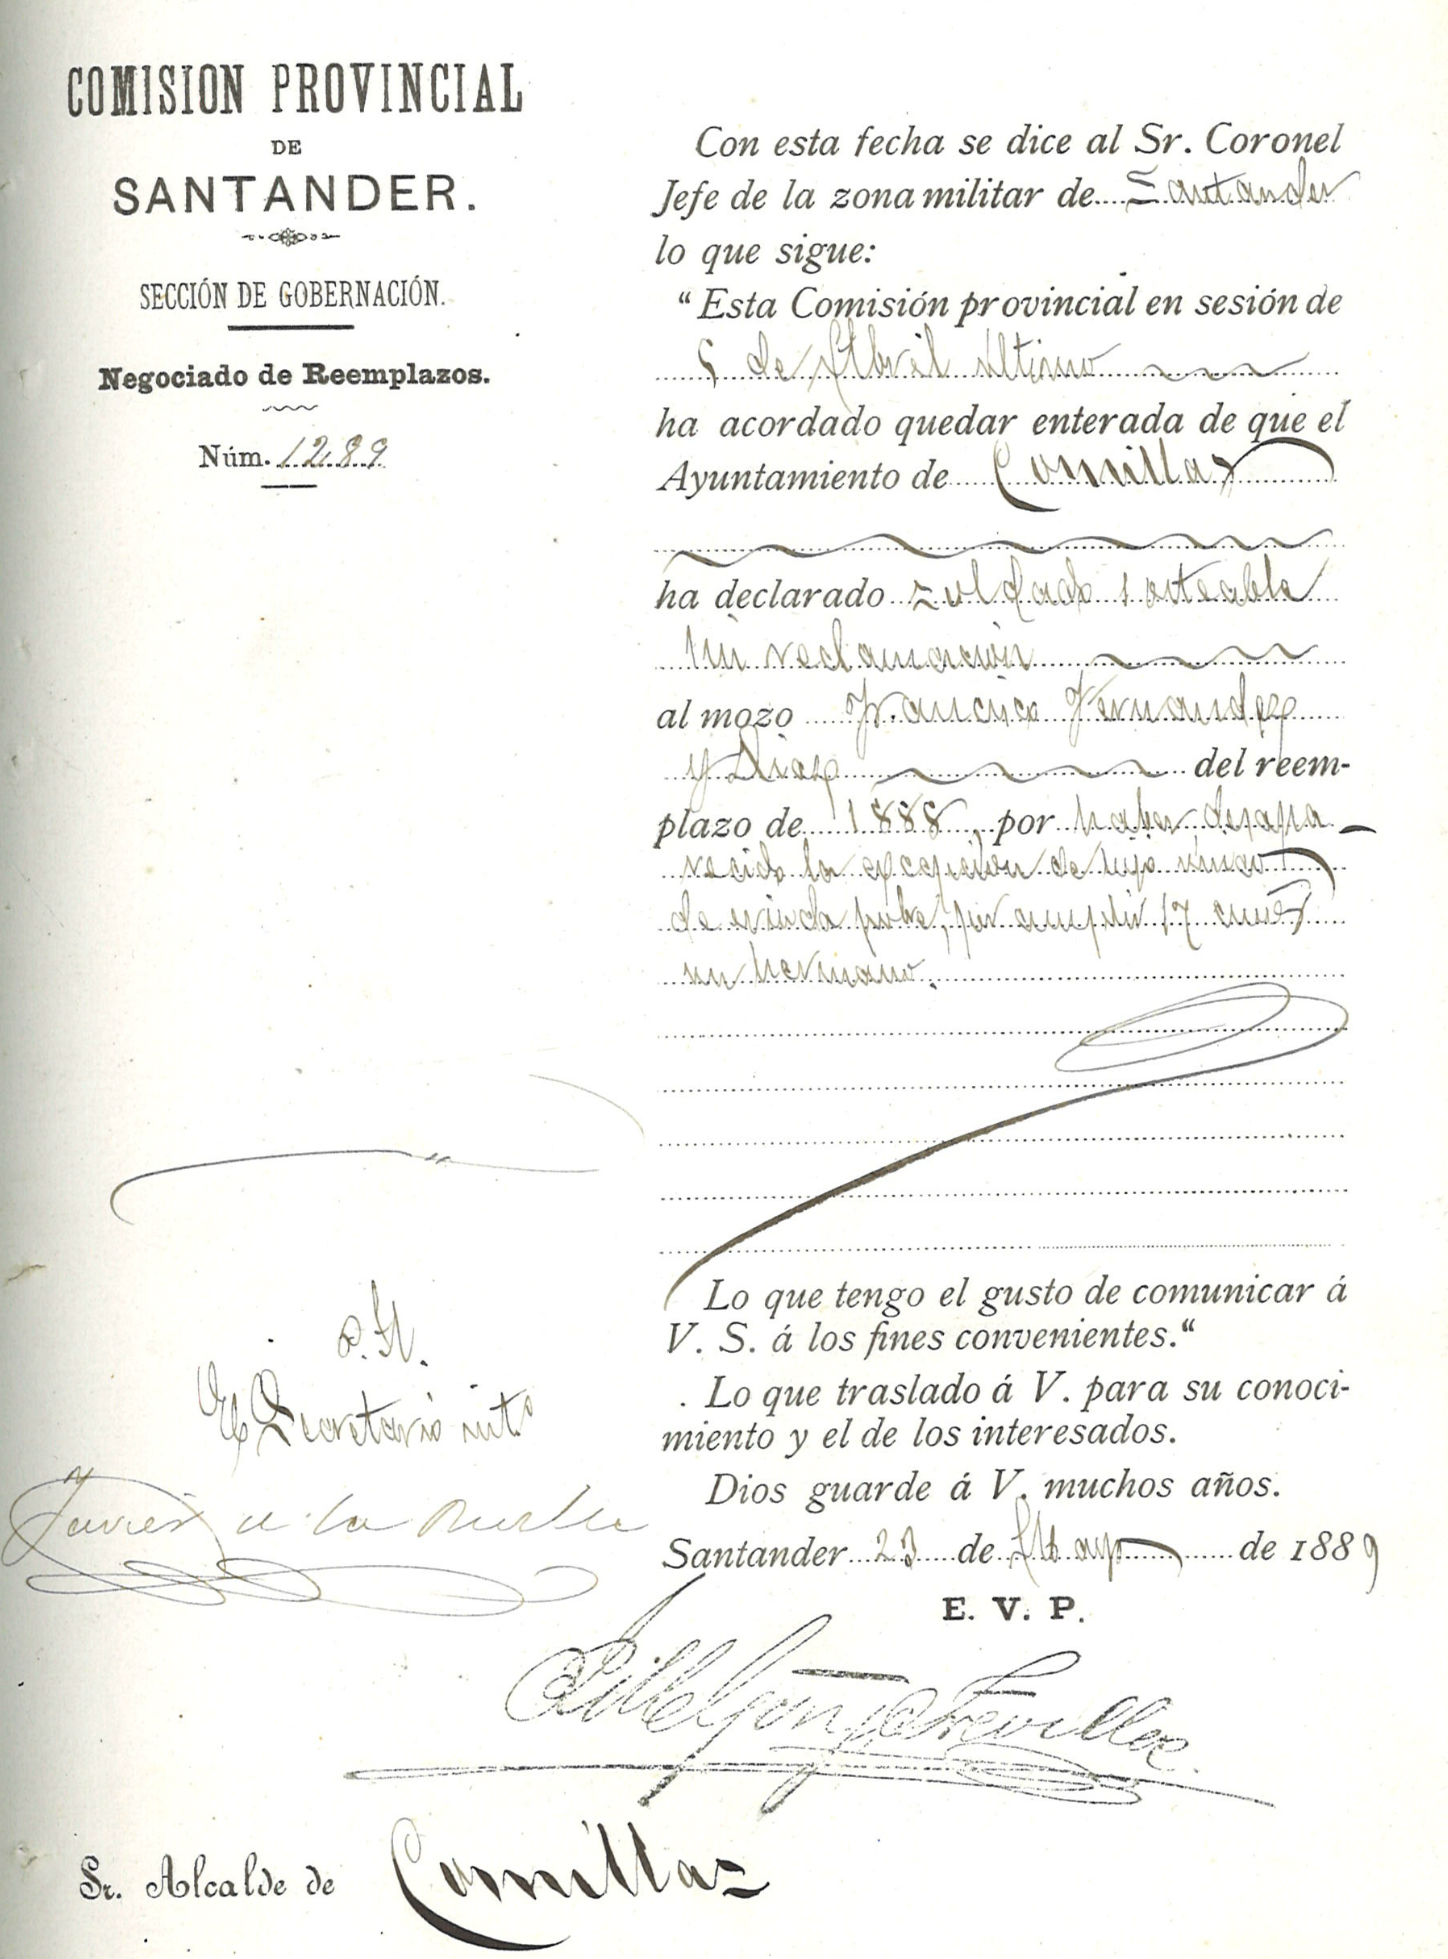 COMISION PROVINCIAL
DE
SANTANDER.
SECCIÓN DE GOBERNACIÓN.
Negociado de Reemplazos.
Núm. 1289
Con esta fecha se dice al Sr. Coronel
Jefe de la zona militar de Santander
lo que sigue:
“Esta Comisión provincial en sesión de
de Abril último
ha acordado quedar enterada de que el
Ayuntamiento de Comillas
ha declarado soldado sorteable
sin reclamación
al mozo Francisco Fernandez
y Diaz del reem-
plazo de 1888, por haber desapa
recido la excepcion de hijo unico
de viuda pobre, por cumplir 17 años
un hermano.
Lo que tengo el gusto de comunicar á
V. S. á los fines convenientes.“
Lo que traslado á V. para su conoci-
miento y el de los interesados.
Dios guarde á V. muchos años.
Santander 23 de Mayo de 1889
E. V. P.
El Secretario int.º
Javier de la
Sr. Alcalde de Comillas